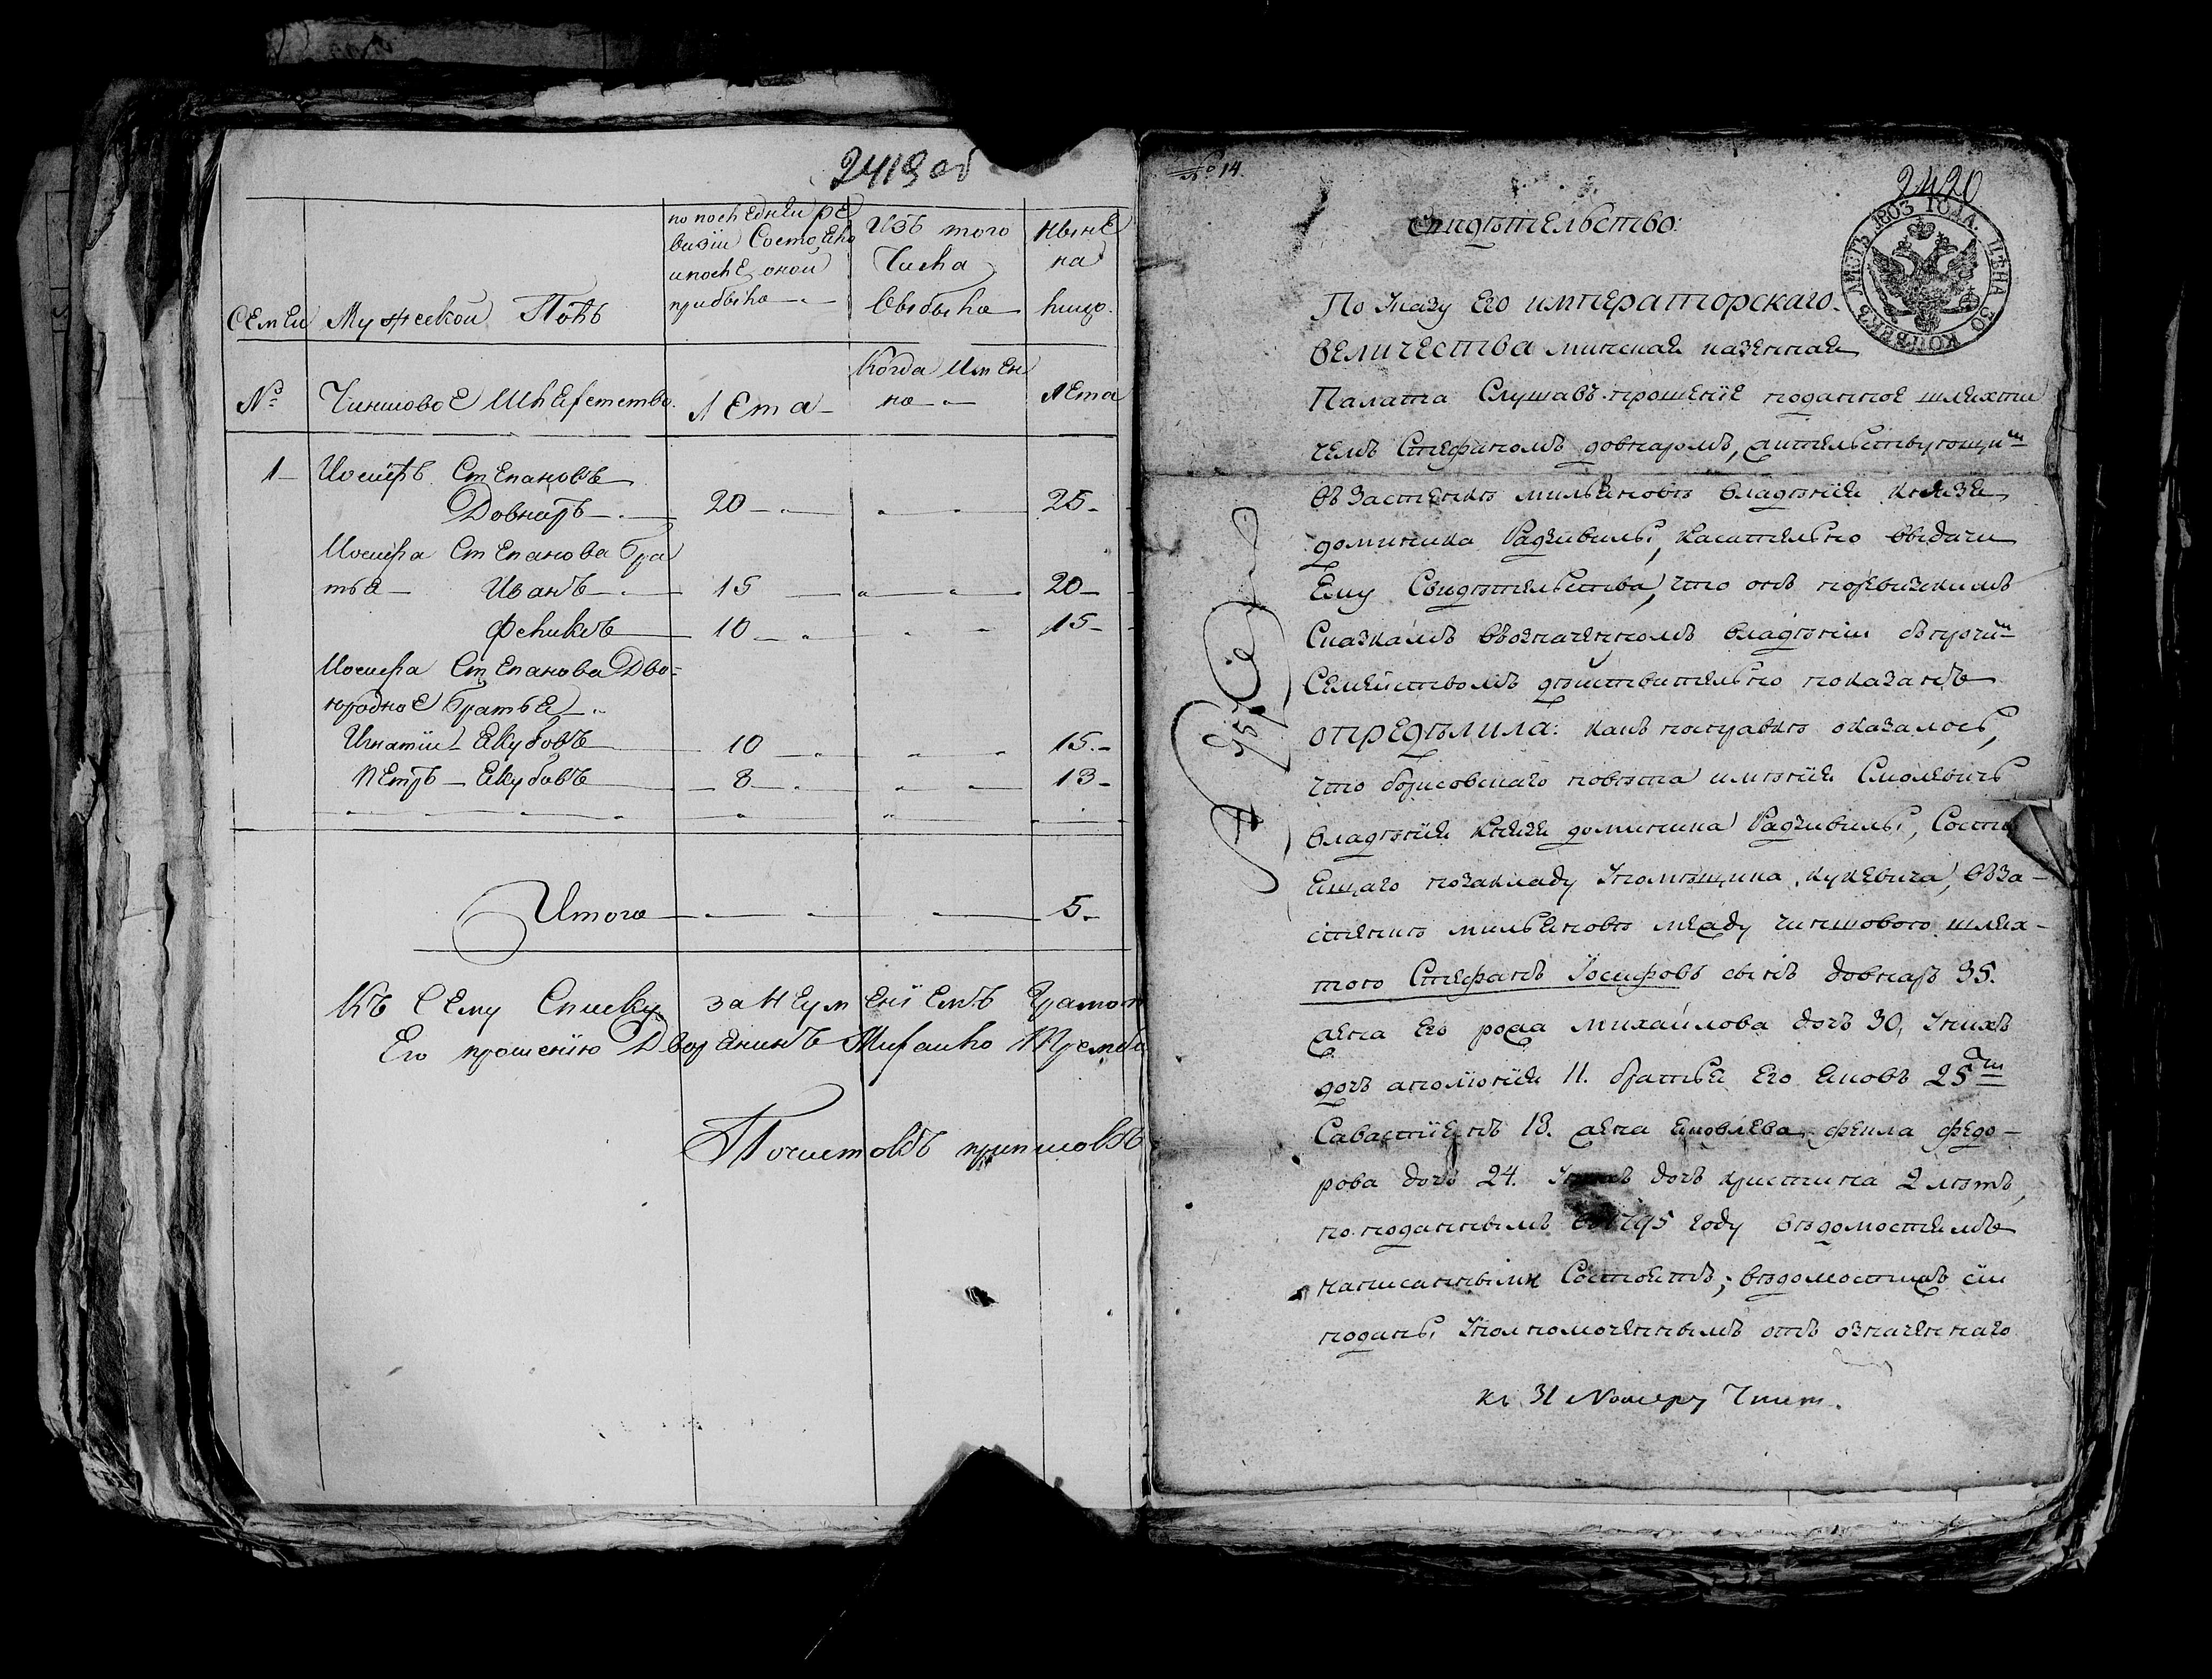 2419 об
Семьи
Мужеской Полъ
по последней ре
визіи Состояло
и после оной
прибыло
Изъ того
Числа
Выбыло
Ныне
на
лицо.
№
Чиншовое Шляхетство.
Лета
Когда Имен
но
Лета
1 Иосифъ Степановъ
Довнаръ 20 25
Иосифа Степанова бра
тья Иванъ 15 20
Феликсъ 10 15
Иосифа Степанова Дво=
юродное братье
Игнатій Якубовъ 10 15
Петръ Якубовъ 8 13
Итого 5
Къ Сему Списку за неуменіемъ Грамот
Его прошенію Дворянинъ
№ 14.
2420
Свидѣтельство:
ЛИСТЪ 1803 ГОДА. ЦѢНА 30 КОПѢЕКЪ
По Указу Его императорскаго
величества минская казенная
Палата Слушавъ прошеніе поданное шляхти
чемъ Стефаномъ довнаромъ, жительствующимъ
въ Застенкѣ мильяновѣ владѣнія Князя
доминика Радзивилы, касательно выдачи
Ему Свидѣтельства, что онъ поревизкимъ
Сказкамъ въозначенномъ владѣніи
Семействомъ дѣиствительно показанъ
определила: какъ посправкѣ оказалось,
что борисовскаго повѣта имѣнія Смолевичъ
владѣнія Князя доминика Радзивилы, Состо
ящаго позакладу Упомѣщика кукевича, вза-
стенкѣ мильяновѣ между чиншового шлях-
того Стефанъ Іосифовъ сынъ довнаръ 35.
жена Его роза михайлова дочъ 30, Унихъ
дочъ аполіонія 11. братья Его Яковъ 25
Савастіянъ 18. жена Яковлева фекла федо-
рова дочъ 24. дочъ кристина 2 лѣтъ,
по поданнымъ 1795 году вѣдомостямъ
написанными Состоятъ; вѣдомостижъ сіи
поданы Уполномоченнымъ отъ означеннаго
къ 31 Номеру